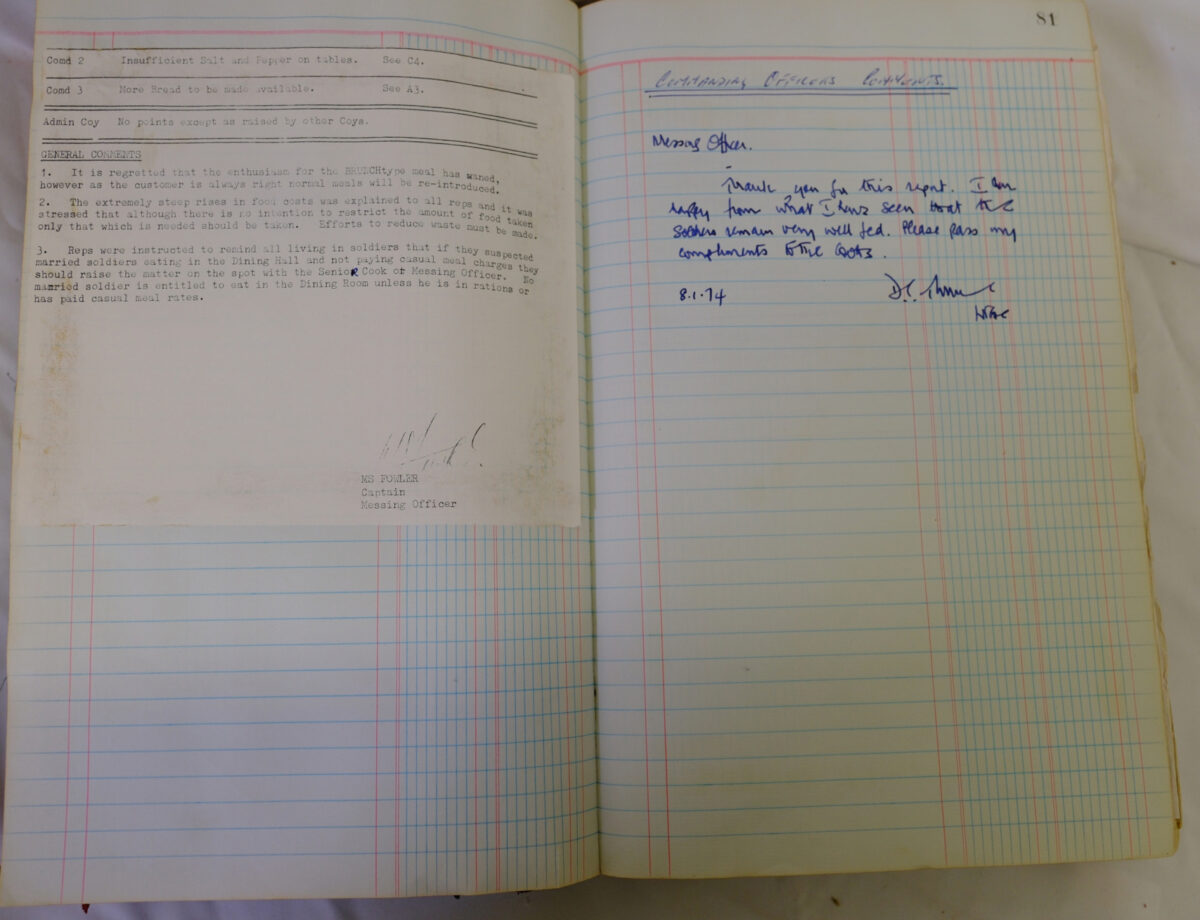 Comd 2 Insufficient Salt and Pepper on tables. See C4.
Comd 3 More Bread to be made available. See A3.
Admin Coy No points except as raised by other Coys.
GENERAL COMMENTS
1. It is regretted that the enthusiasm for the BRUNCHtype meal has waned,
however as the customer is always right normal meals will be re-introduced.
2. The extremely steep rises in food costs was explained to all reps and it was
stressed that although there is no intention to restrict the amount of food taken
only that which is needed should be taken. Efforts to reduce waste must be made.
3. Reps were instructed to remind all living in soldiers that if they suspected
married soldiers eating in the Dining Hall and not paying casual meal charges they
should raise the matter on the spot with the SenioR Cook of Messing Officer. No
married soldier is entitled to eat in the Dining Room unless he is in rations or
has paid casual meal rates.
MS FOWLER
Captain
Messing Officer
81
COMMANDING OFFICERS COMMENTS.
Messing Officer.
Thank you for this report. I am
happy from what I have seen that the
soldiers remain very well fed. Please pass my
compliments to the Cooks.
8.1.74